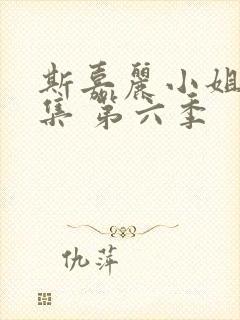 斯嘉麗小姐
集 第六季
仇萍